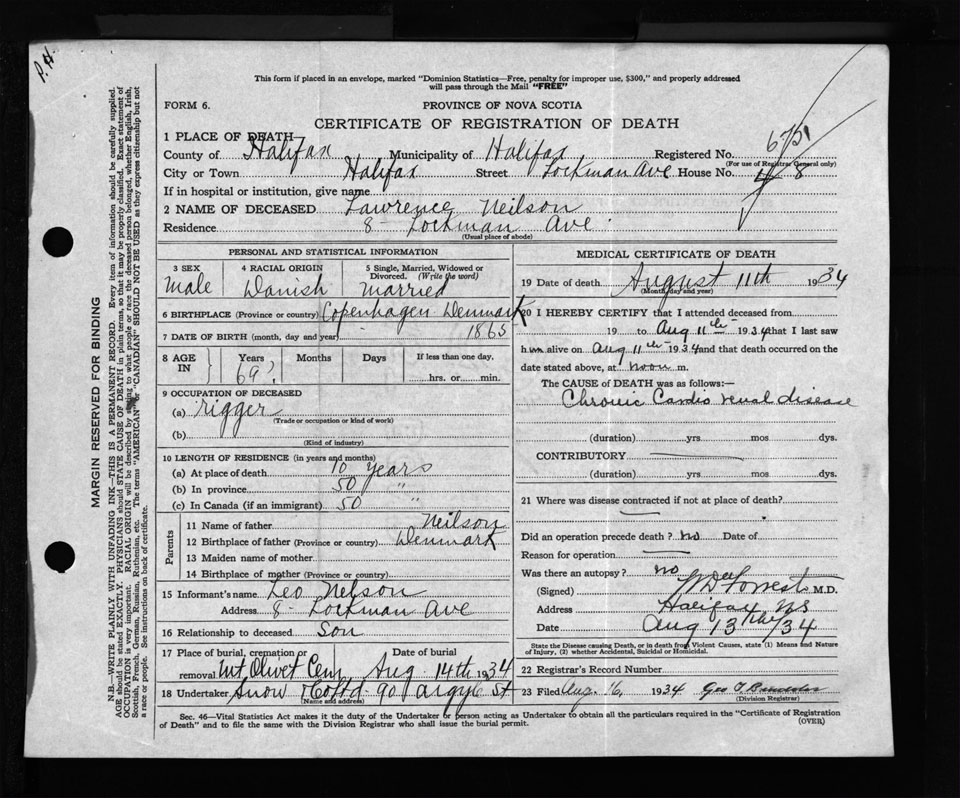 P.H.
This form if placed in an envelope, marked "Dominion Statistics—Free, penalty for improper use, $300," and properly addressed
will pass through the Mail "FREE"
FORM 6.
PROVINCE OF NOVA SCOTIA
CERTIFICATE OF REGISTRATION OF DEATH
1 PLACE OF DEATH
County of Halifax Municipality of Halifax Registered No.
(For use of Registrar General only)
City or Town Halifax Street Lockman Ave House No. 8
If in hospital or institution, give name
2 NAME OF DECEASED Lawrence Neilson
Residence 8 - Lockman Ave
(Usual place of abode)
PERSONAL AND STATISTICAL INFORMATION
3 SEX 4 RACIAL ORIGIN 5 Single, Married, Widowed or
Divorced. (Write the word)
Male Danish Married
6 BIRTHPLACE (Province or country) Copenhagen Denmark
7 DATE OF BIRTH (month, day and year) 1865
8 AGE IN Years Months Days If less than one day,
69? hrs. or min.
9 OCCUPATION OF DECEASED
(a) rigger
(Trade or occupation or kind of work)
(b)
(Kind of industry)
10 LENGTH OF RESIDENCE (in years and months)
(a) At place of death 10 years
(b) In province 50 "
(c) In Canada (if an immigrant) 50 "
Parents
11 Name of father Neilson
12 Birthplace of father (Province or country) Denmark
13 Maiden name of mother
14 Birthplace of mother (Province or country)
15 Informant's name Leo Nelson
Address 8 - Lockman Ave
16 Relationship to deceased Son
17 Place of burial, cremation or Date of burial
removal Mt Olivet Cem Aug 14th 1934
18 Undertaker Snow & Co Ltd - 90 Argyle St
(Name and address)
MEDICAL CERTIFICATE OF DEATH
19 Date of death August 11th 1934
(Month, day and year)
20 I HEREBY CERTIFY that I attended deceased from
19 to Aug 11th 1934 that I last saw
him alive on Aug 11th 1934 and that death occurred on the
date stated above, at noon m.
The CAUSE of DEATH was as follows:—
Chronic Cardio renal disease
(duration) yrs mos dys.
CONTRIBUTORY
(duration) yrs. mos. dys.
21 Where was disease contracted if not at place of death?
Did an operation precede death? no Date of
Reason for operation
Was there an autopsy? no
(Signed) W DeForrest M.D.
Address Halifax NS
Date Aug 13 /34
State the Disease causing Death, or in death from Violent Causes, state (1) Means and Nature
of Injury, (2) whether Accidental, Suicidal or Homicidal.
22 Registrar's Record Number
23 Filed Aug. 16, 1934
(Division Registrar)
Sec. 46—Vital Statistics Act makes it the duty of the Undertaker or person acting as Undertaker to obtain all the particulars required in the "Certificate of Registration
of Death" and to file the same with the Division Registrar who shall issue the burial permit.
(OVER)
MARGIN RESERVED FOR BINDING
N.B.—WRITE PLAINLY WITH UNFADING INK—THIS IS A PERMANENT RECORD. Every item of information should be carefully supplied.
AGE should be stated EXACTLY. PHYSICIANS should STATE CAUSE OF DEATH in plain terms, so that it may be properly classified. Exact statement of
OCCUPATION is very important. RACIAL ORIGIN will be described by stating to what people or race the deceased person belonged, whether English, Irish,
Scottish, French, German, Russian, Ruthenian, etc. The terms "AMERICAN" or "CANADIAN" SHOULD NOT BE USED as they express citizenship but not
a race or people. See instructions on back of certificate.